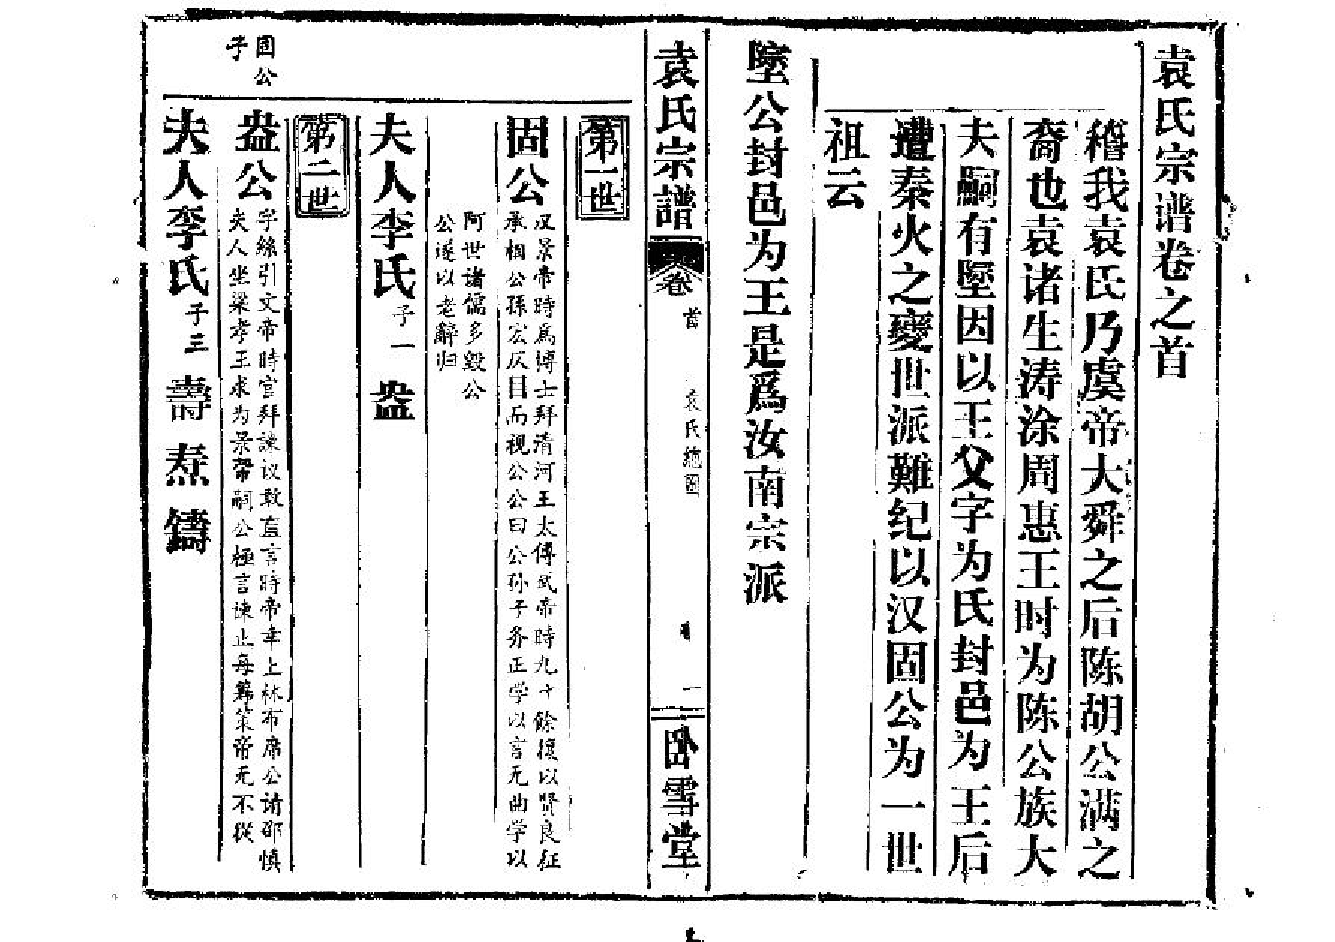 袁氏宗谱卷之首
稽我袁氏乃虞帝大舜之后陈胡公满之
裔也袁诸生涛涂周惠王时为陈公族大
夫嗣有墬因以王父字为氏封邑为王后
遭秦火之變世派難纪以汉固公为一世
祖云
墬公封邑为王是爲汝南宗派
袁氏宗譜
卷首
袁氏總圖
一
卧雪堂
第一世
固公
汉景帝時為博士拜清河王太傅武帝時九十餘復以賢良征
承相公孫宏仄目而视公公曰公孙子务正学以言无曲学以
阿世诸儒多毀公
公遂以老辭归
夫人李氏 子一 盎
第二世
固公
子
盎公
字絲引文帝時官拜諫议敢直言時帝幸上林布席公请邵慎
夫人坐梁孝王求为景帝嗣公極言諫止每籌策帝无不從
夫人李氏 子三 壽 焘 鑄